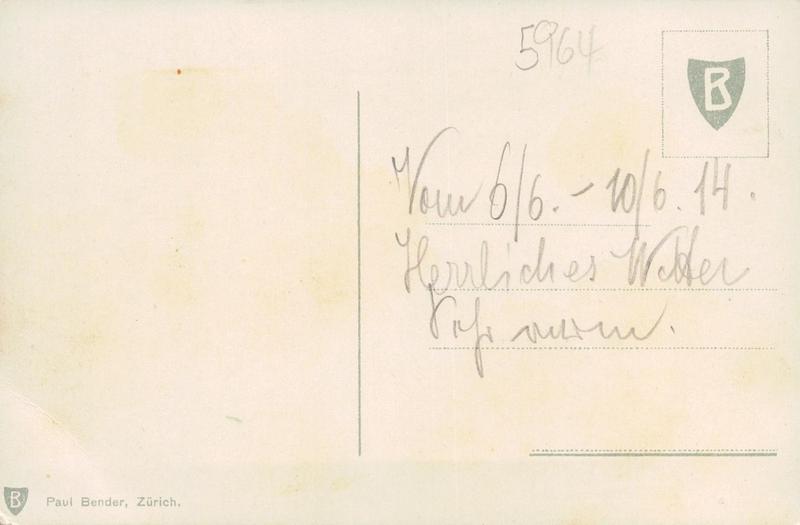 5964
B
Vom 6/6. - 10/6. 14.
Herrliches Wetter
Sehr warm.
B Paul Bender, Zürich.